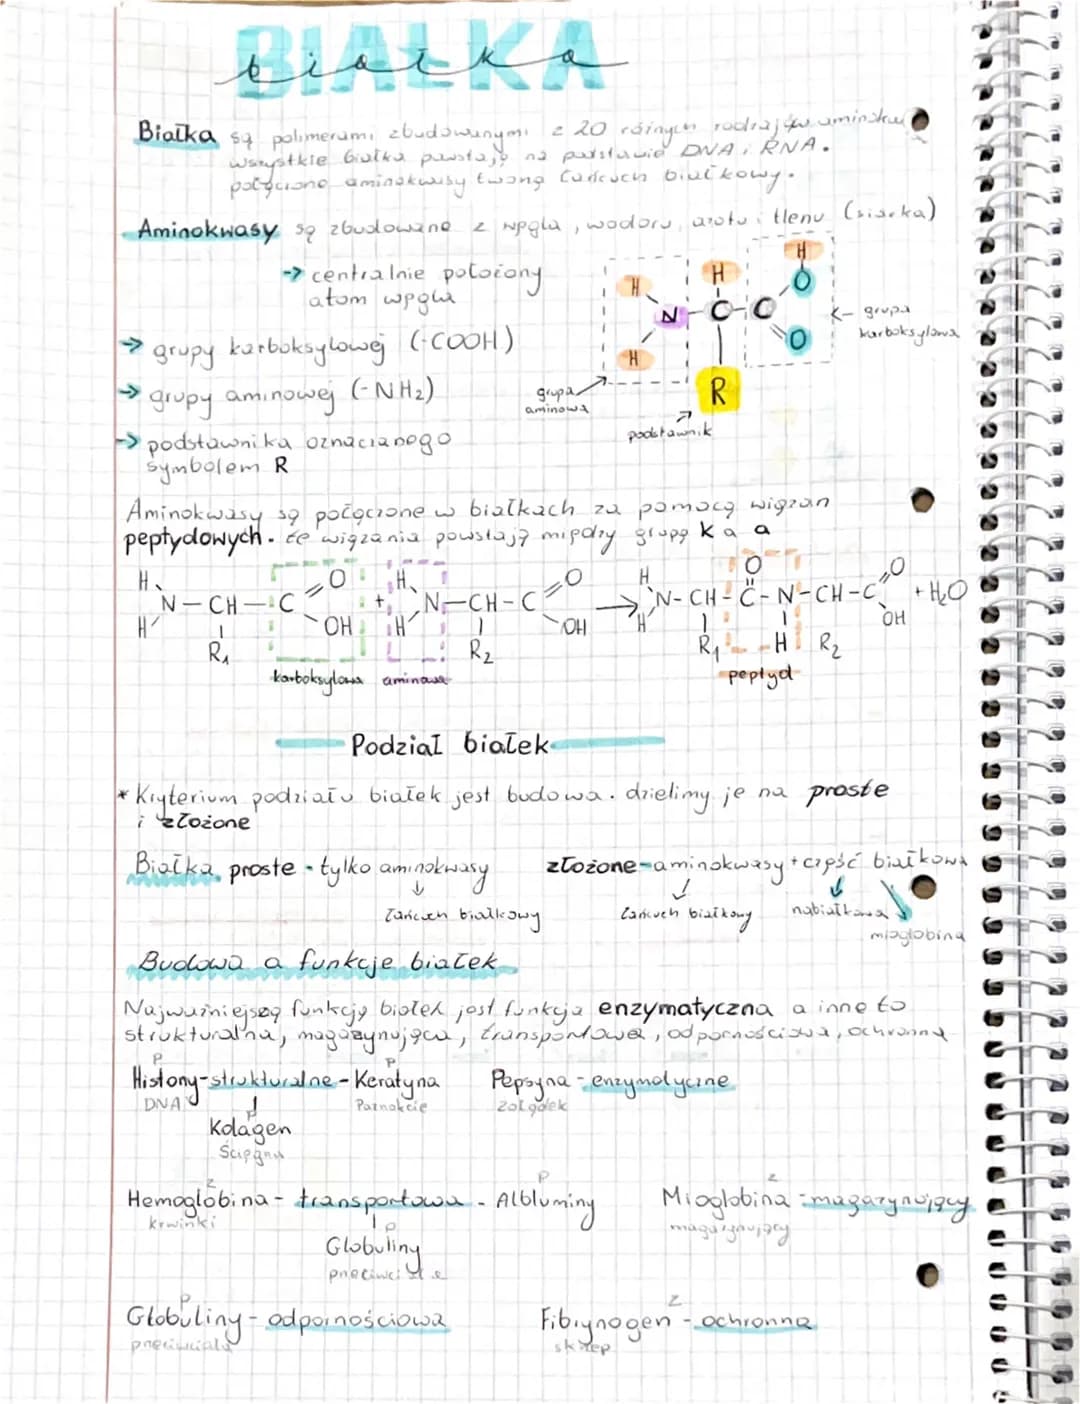 BIAŁKA
białka
Białka są polimerami zbudowanymi z 20 różnych rodzajów
wszystkie białka powstają na podstawie DNA i RNA.
połączone aminokwasy tworzą łańcuch białkowy.
Aminokwasy są zbudowane z węgla, wodoru, azotu i tlenu (siarka)
→ centralnie położony
atom węgla
→ grupy karboksylowej (-COOH)
→ grupy aminowej (-NH2)
→ podstawnika oznaczanego
symbolem R
H H H
N C C O
H R O
grupa
aminowa
podstawnik
grupa
karboksylowa
Aminokwasy są połączone w białkach za pomocą wiązań
peptydowych. te wiązania powstają między grupą K a a
H O H O H O O
N-CH-C + N-CH-C → N-CH-C-N-CH-C + H2O
H R1 OH H R2 OH H R1 H R2 OH
karboksylowa aminowa peptyd
Podział białek
* Kryterium podziału białek jest budowa. dzielimy je na proste
i złożone
Białka proste - tylko aminokwasy
łańcuch białkowy
złożone - aminokwasy + część białkowa
łańcuch białkowy niebiałkowa
mioglobina
Budowa a funkcje białek
Najważniejszą funkcją białek jest funkcja enzymatyczna a inne to
strukturalna, magazynująca, transportowa, odpornościowa, ochronna
P P
Histony - strukturalne - Keratyna Pepsyna - enzymatyczne
DNA Paznokcie żołądek
P
Kolagen
Ścięgna
Z P Z
Hemoglobina - transportowa - Albluminy Mioglobina - magazynujący
krwinki magazynujący
P
Globuliny
P Z
Globuliny - odpornościowa Fibrynogen - ochronna
przeciwciała skrzep